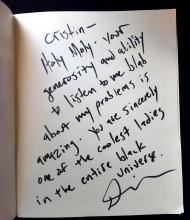 Cristin—
Holy Moly— your
generosity and ability
to listen to me blab
about my problems is
amazing. You are sincerely
one of the coolest ladies
in the entire black
universe.